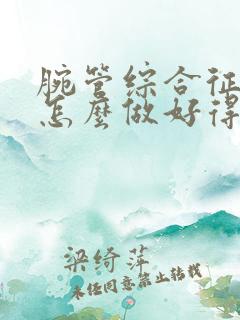 腕管综合征
怎麽做好得
梁绮萍
未经同意禁止转载